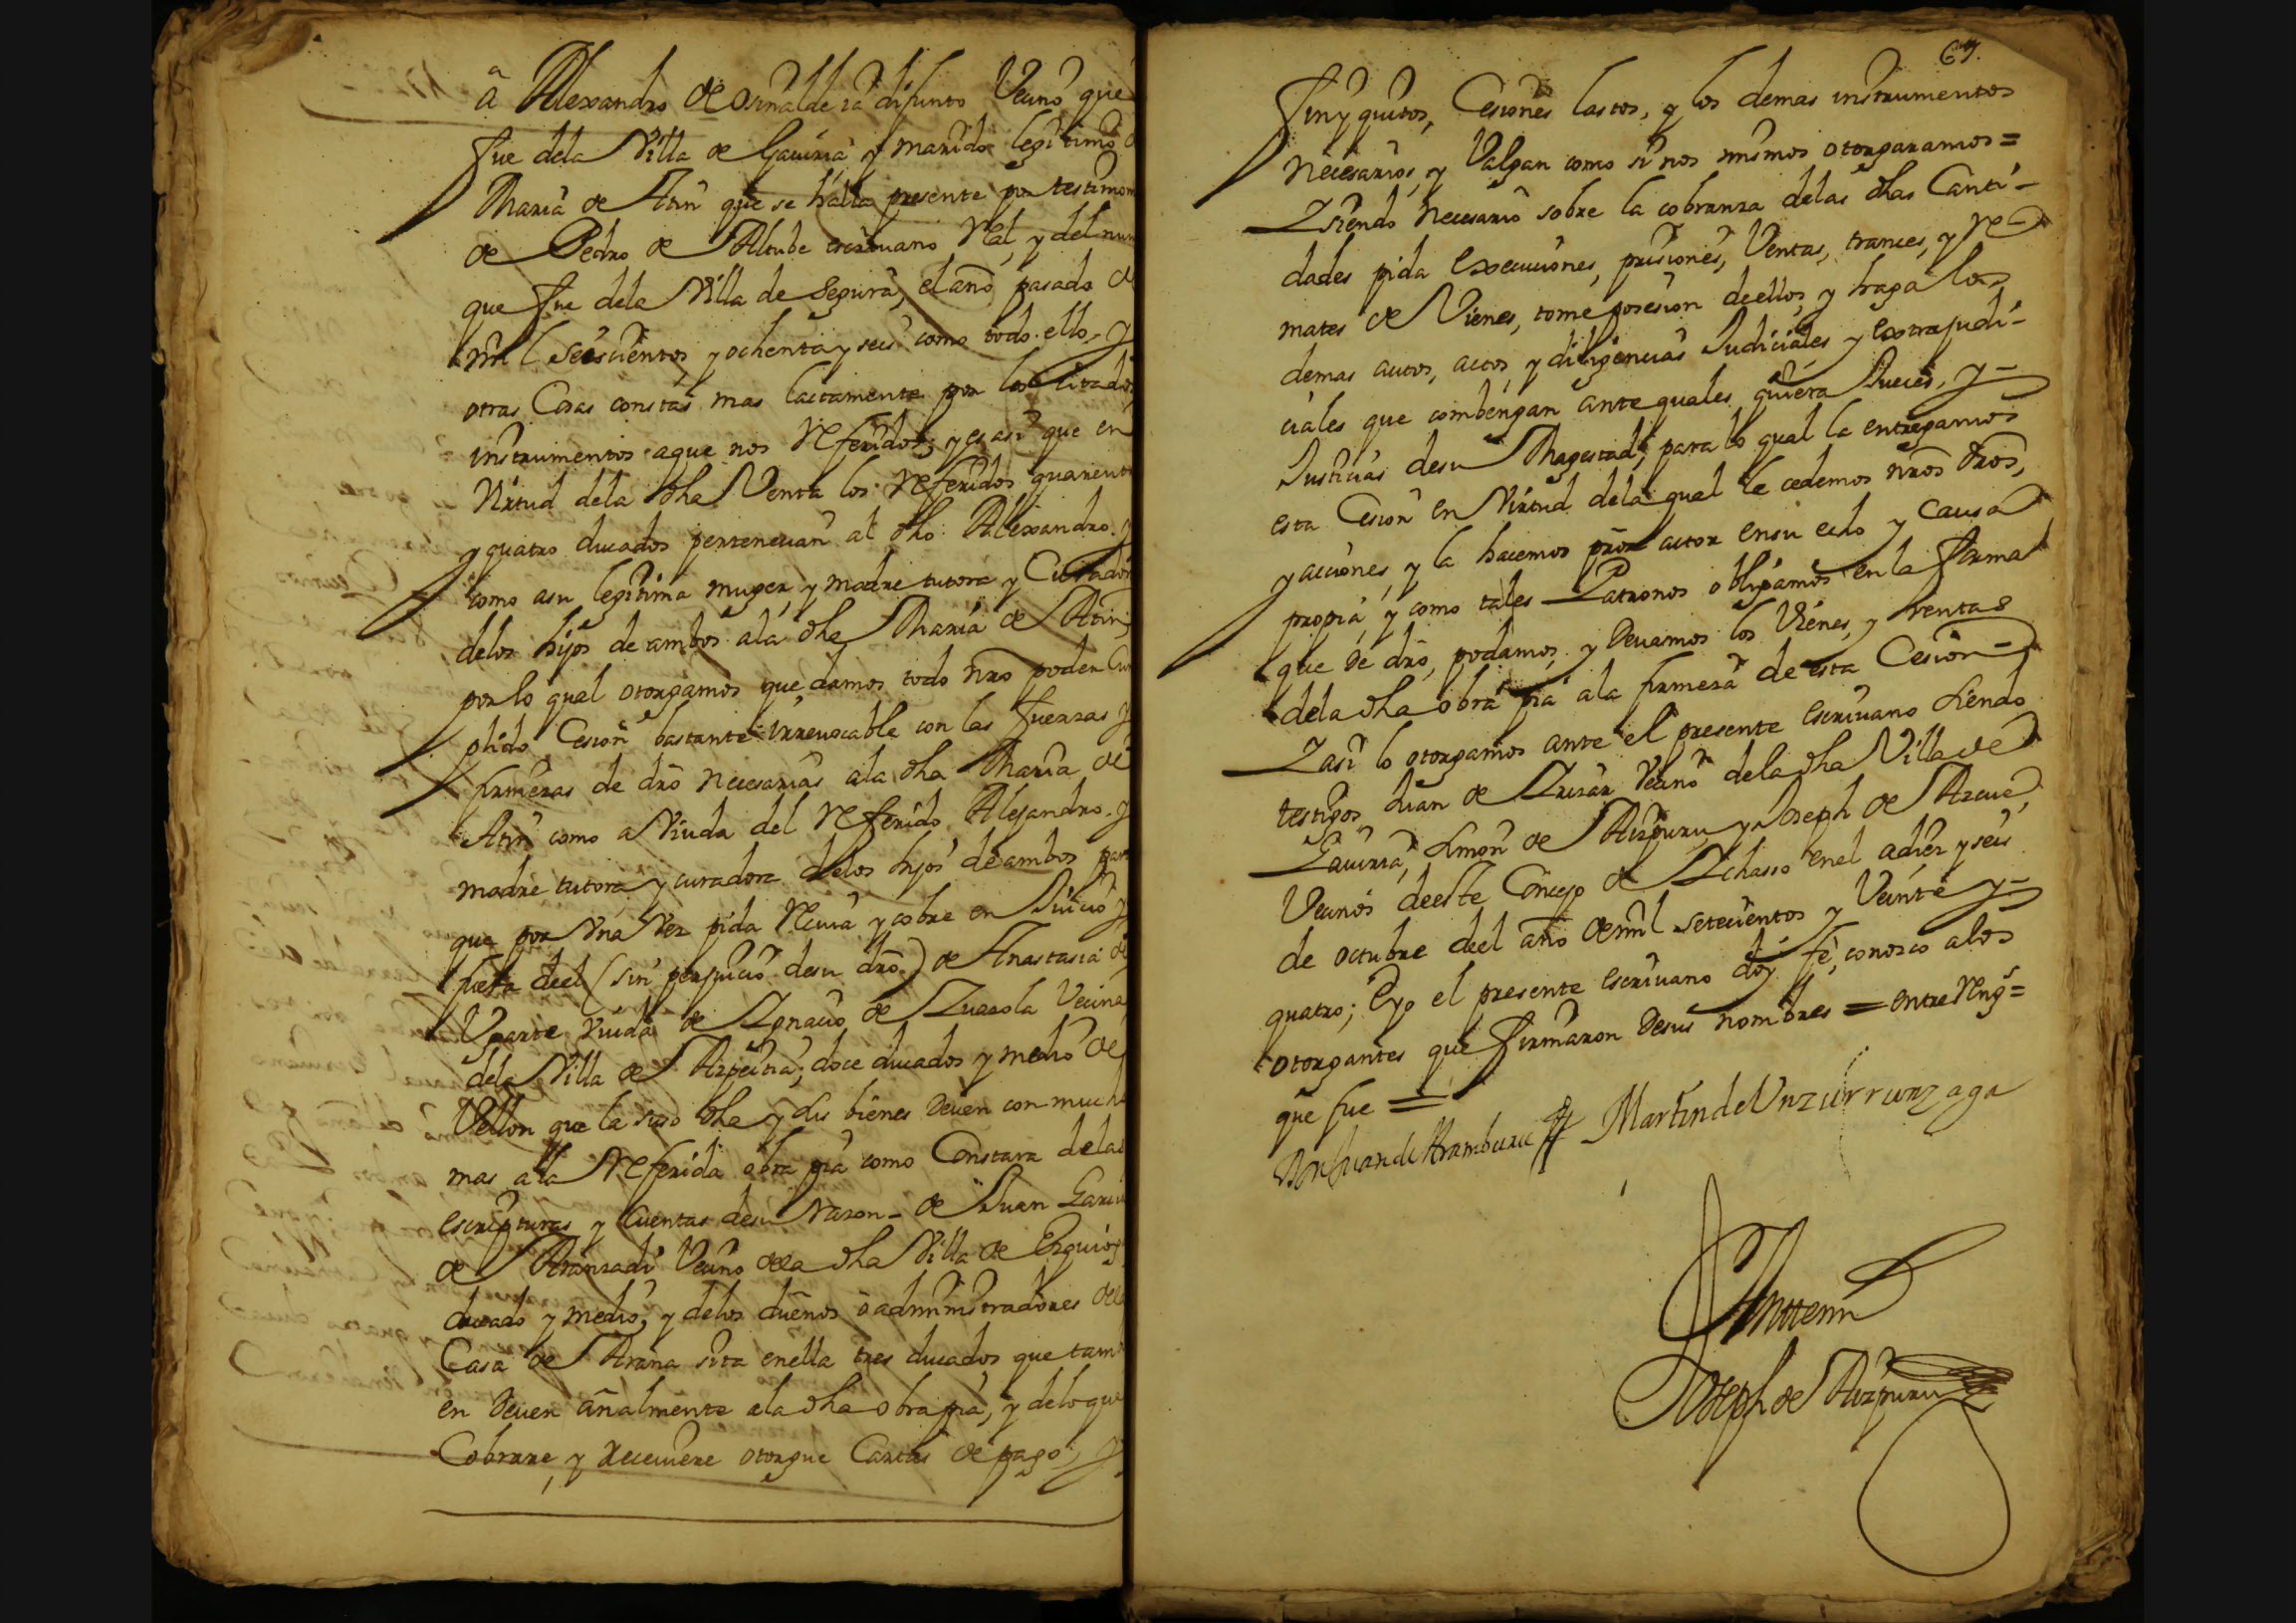 a Alexandro de Osinalde ia difunto Vecino que
fue dela Villa de Gaviria y marido legitimo d
Maria de Atin que se halla presente por testimon
de Pedro de Altube escrivano Real, y del num
que fue dela Villa de Segura, el año pasado de
mil seiscientos y ochenta y seis como todo ello, y
otras Cosas constas mas lactamente por los Citados
instrumentos aque nos Referidos; y es asi que en
Virtud dela dha Venta los Referidos quarenta
y quatro ducados pertenecian al dho Alexandro y
como asu legitima muger, y madre tutora y Curador
delos hijos de ambos ala dha Maria de Atin,
por lo qual otorgamos que damos todo nro poder Cum
plido Cesion bastante irrevocable con las fuerzas y
firmezas de dro necesarias ala dha Maria de
Atin como a Viuda del Referido Alejandro y
madre tutora y curadora delos hijos de ambos para
que por Vna Vez pida Reciva y cobre en Juicio y
fuera deel (sin perjuicio desu dro) de Anastasia de
Vgarte Viuda de Ygnacio de Zuazola Vecina
dela Villa de Azpeitia; doce ducados y medio de
Vellon que la suso dha y sus bienes deven con mucho
mas ala Referida obra pia como Constara delas
escripturas y Cuentas desu razon - de Juan Garcia
de Aranzadi Vecino dela dha Villa de Ezquioga
ducado y medio, y delos dueños o administradores dela
Casa de Arana sita enella tres ducados que tam
en deven añalmente ala dha obra pia, y delo que
Cobrare, y Receviere otorgue Cartas de pago, y
67.
finyquitos, Cesiones lastos, y los demas instrumentos
necesarios, y Valgan como si nos mismos otorgaramos =
Y siendo necesario sobre la cobranza delas dhas Canti-
dades pida Execuciones, prisiones, Ventas, trances, y Re-
mates de Vienes, tome posesion deellos, y haga los
demas autos, actos, y diligencias Judiciales y extrajudi-
ciales que combengan ante quales quiera Jueces, y-
Justicias desu Magestad, para lo qual la entregamos
esta Cesion en Virtud dela qual le cedemos nros dros,
y acciones, y la hacemos pror actor ensu echo y causa
propia, y como tales Patronos obligamos en la forma
que de dro, podamos, y Devamos los Vienes, y rentas
dela dha obra pia ala firmeza de esta Cesion-
Y asi lo otorgamos ante el presente escrivano siendo
testigos Juan de Yrizar Vecino dela dha Villa de
Gaviria, Simon de Aizpuru, y Joseph de Azcue,
Vecinos deeste Concejo de Ychasso enel adiez y seis
de octubre deel año demil setecientos y Veinte y-
quatro; Eyo el presente escrivano doy fe, conosco alos
otorgantes que firmaron desus nombres = entre Reng=
que fue =
Don Juan de Aramburu Martin de Vnzurrunzaga
Antte mi
Joseph de Aizpuru